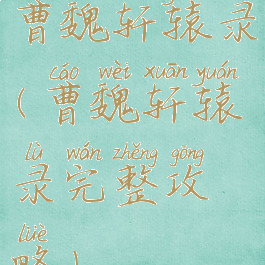 曹魏轩辕录
cáo wèi xuān yuán
(曹魏轩辕
lù wán zhěng gōng
录完整攻
lüè
略)